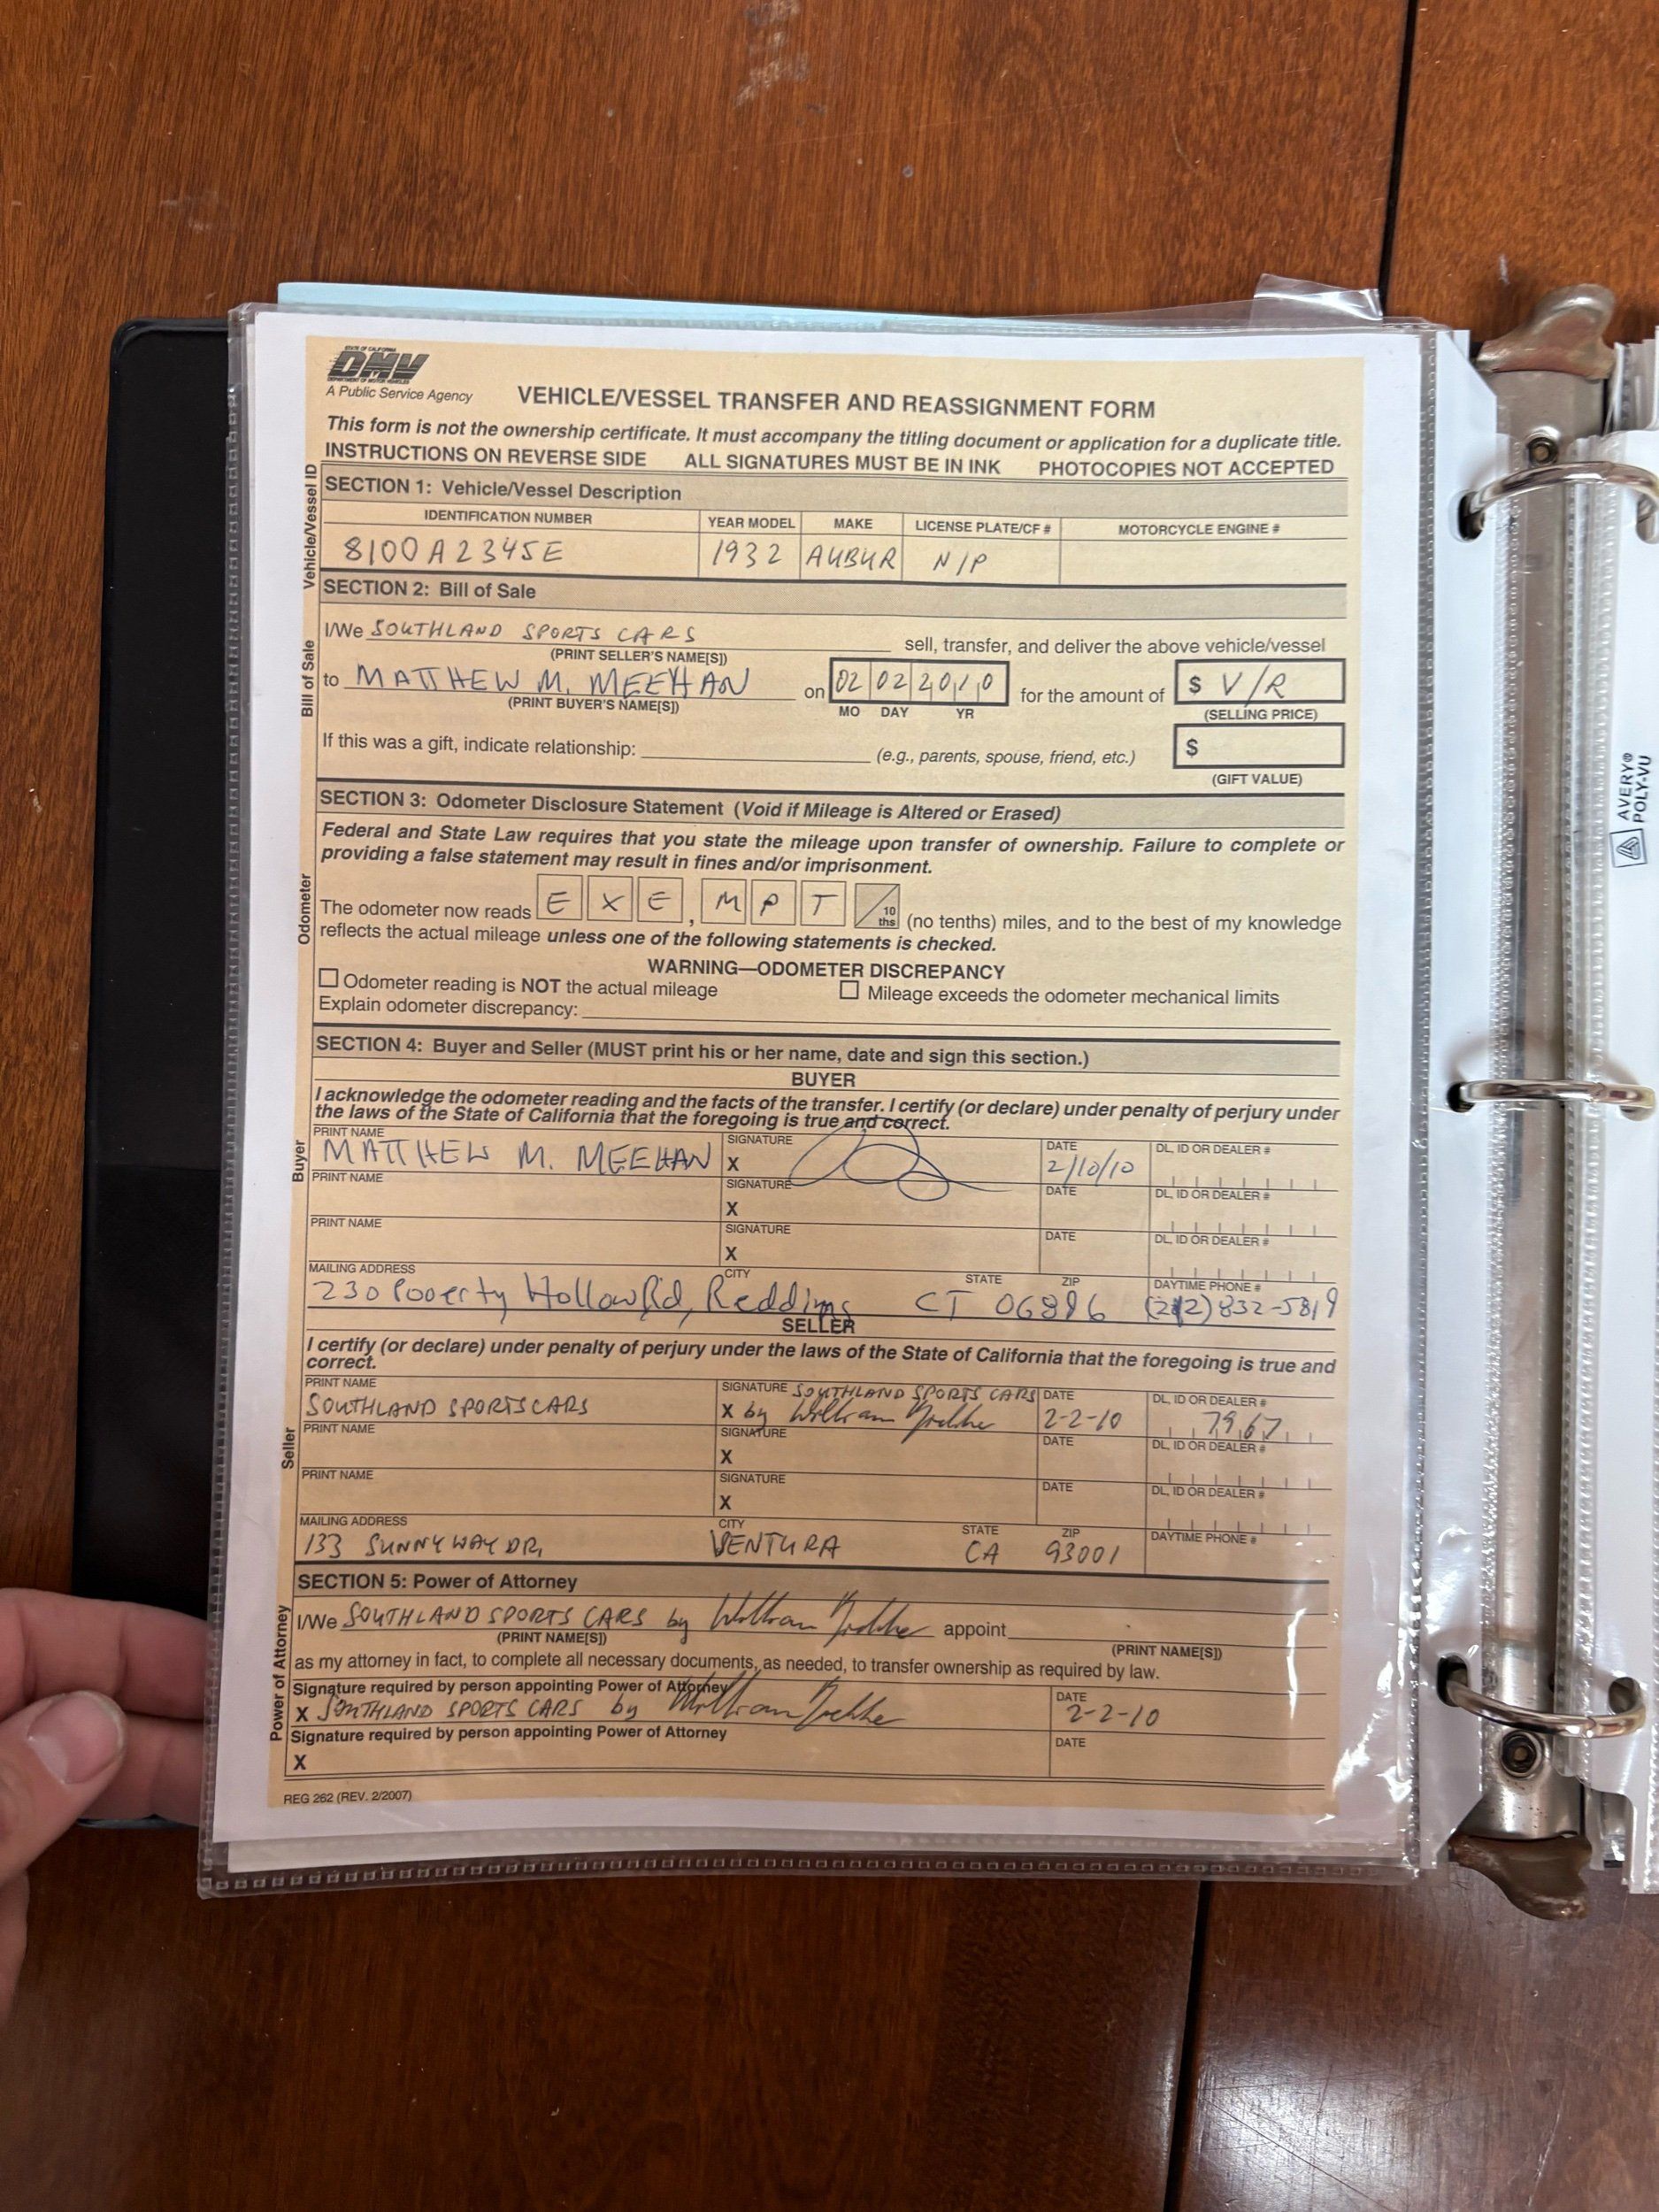 STATE OF CALIFORNIA
DMV
DEPARTMENT OF MOTOR VEHICLES
A Public Service Agency
VEHICLE/VESSEL TRANSFER AND REASSIGNMENT FORM
This form is not the ownership certificate. It must accompany the titling document or application for a duplicate title.
INSTRUCTIONS ON REVERSE SIDE ALL SIGNATURES MUST BE IN INK PHOTOCOPIES NOT ACCEPTED
Vehicle/Vessel ID
SECTION 1: Vehicle/Vessel Description
IDENTIFICATION NUMBER YEAR MODEL MAKE LICENSE PLATE/CF # MOTORCYCLE ENGINE #
8100A2345E 1932 AUBUR N/P
Bill of Sale
SECTION 2: Bill of Sale
I/We SOUTHLAND SPORTS CARS sell, transfer, and deliver the above vehicle/vessel
(PRINT SELLER'S NAME[S])
to MATTHEW M. MEEHAN on 02 02 2010 for the amount of $ V/R
(PRINT BUYER'S NAME[S]) MO DAY YR (SELLING PRICE)
If this was a gift, indicate relationship: (e.g., parents, spouse, friend, etc.) $
(GIFT VALUE)
Odometer
SECTION 3: Odometer Disclosure Statement (Void if Mileage is Altered or Erased)
Federal and State Law requires that you state the mileage upon transfer of ownership. Failure to complete or
providing a false statement may result in fines and/or imprisonment.
The odometer now reads E X E , M P T 10 ths (no tenths) miles, and to the best of my knowledge
reflects the actual mileage unless one of the following statements is checked.
WARNING—ODOMETER DISCREPANCY
Odometer reading is NOT the actual mileage Mileage exceeds the odometer mechanical limits
Explain odometer discrepancy:
SECTION 4: Buyer and Seller (MUST print his or her name, date and sign this section.)
BUYER
I acknowledge the odometer reading and the facts of the transfer. I certify (or declare) under penalty of perjury under
the laws of the State of California that the foregoing is true and correct.
Buyer
PRINT NAME SIGNATURE DATE DL, ID OR DEALER #
MATTHEW M. MEEHAN X 2/10/10
PRINT NAME SIGNATURE DATE DL, ID OR DEALER #
X
PRINT NAME SIGNATURE DATE DL, ID OR DEALER #
X
MAILING ADDRESS CITY STATE ZIP DAYTIME PHONE #
230 Poverty Hollow Rd, Redding CT 06896 (212) 832-5819
SELLER
I certify (or declare) under penalty of perjury under the laws of the State of California that the foregoing is true and
correct.
Seller
PRINT NAME SIGNATURE SOUTHLAND SPORTS CARS DATE DL, ID OR DEALER #
SOUTHLAND SPORTSCARS X by William 2-2-10 7967
PRINT NAME SIGNATURE DATE DL, ID OR DEALER #
X
PRINT NAME SIGNATURE DATE DL, ID OR DEALER #
X
MAILING ADDRESS CITY STATE ZIP DAYTIME PHONE #
133 SUNNYWAY DR, VENTURA CA 93001
Power of Attorney
SECTION 5: Power of Attorney
I/We SOUTHLAND SPORTS CARS by William appoint
(PRINT NAME[S]) (PRINT NAME[S])
as my attorney in fact, to complete all necessary documents, as needed, to transfer ownership as required by law.
Signature required by person appointing Power of Attorney DATE
X SOUTHLAND SPORTS CARS by William 2-2-10
Signature required by person appointing Power of Attorney DATE
X
REG 262 (REV. 2/2007)
AVERY®
POLY-VU